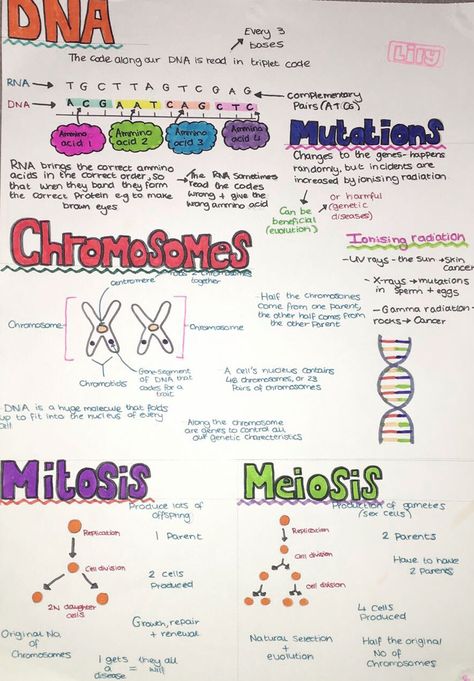 DNA
Every 3
bases
The code along our DNA is read in triplet code
Lily
RNA → T G C T T A G T C G A G
DNA → A C G A A T C A G C T C
complementary
Pairs (AT CG)
Ammino
acid 1
Ammino
acid 2
Ammino
acid 3
Ammino
acid 4
RNA brings the correct ammino
acids in the correct order, so
that when they bond they form
the correct Protein e.g to make
brown eyes
The RNA sometimes
read the codes
wrong + give the
wrong amino acid
Mutations
Changes to the genes- happens
randomly, but incidents are
increased by ionising radiation
Can be
beneficial
(evolution)
or harmful
(genetic
diseases)
Chromosomes
centromere
2 chromosomes
together
Chromosome
Chromosome
Chromotids
Gene-Segment
of DNA that
codes for a
trait
Half the chromosomes
come from one parent,
the other half comes from
the other Parent
A cell's nucleus contains
46 chromosomes, or 23
Pairs of chromosomes
DNA is a huge molecule that folds
up to fit into the nucleus of every
cell
Along the chromosome
are genes to control all
our genetic characteristics
Ionising radiation
-UV rays - the Sun → Skin
cancer
- X-rays → mutations
in Sperm + eggs
- Gamma radiation -
rocks → Cancer
Mitosis
Produce lots of
offspring
Replication
1 Parent
Cell division
2 cells
Produced
2N daughter
cells
Growth, repair
+ renewal
Original No.
of
Chromosomes
1 gets
a
disease
=
they all
will
Meiosis
Production of gametes
(sex cells)
Replication
2 Parents
Cell division
Have to have
2 Parents
Cell division
4 cells
Produced
Natural selection
+
evolution
Half the original
No of
Chromosomes